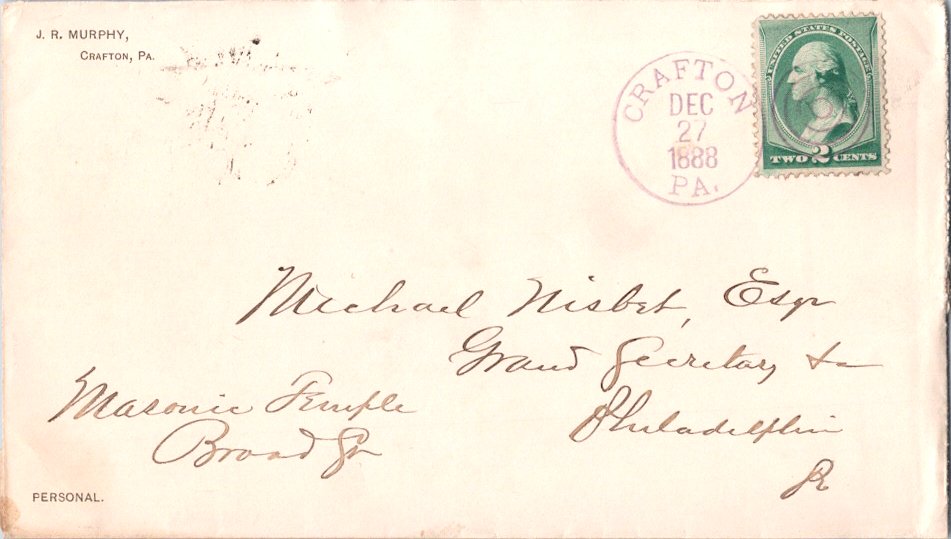 J. R. MURPHY,
CRAFTON, PA.
CRAFTON
DEC
27
1888
PA.
UNITED STATES POSTAGE
TWO 2 CENTS
Michael Nisbet, Esqr
Grand Secretary &c
Masonic Temple
Broad St
Philadelphia
Pa
PERSONAL.